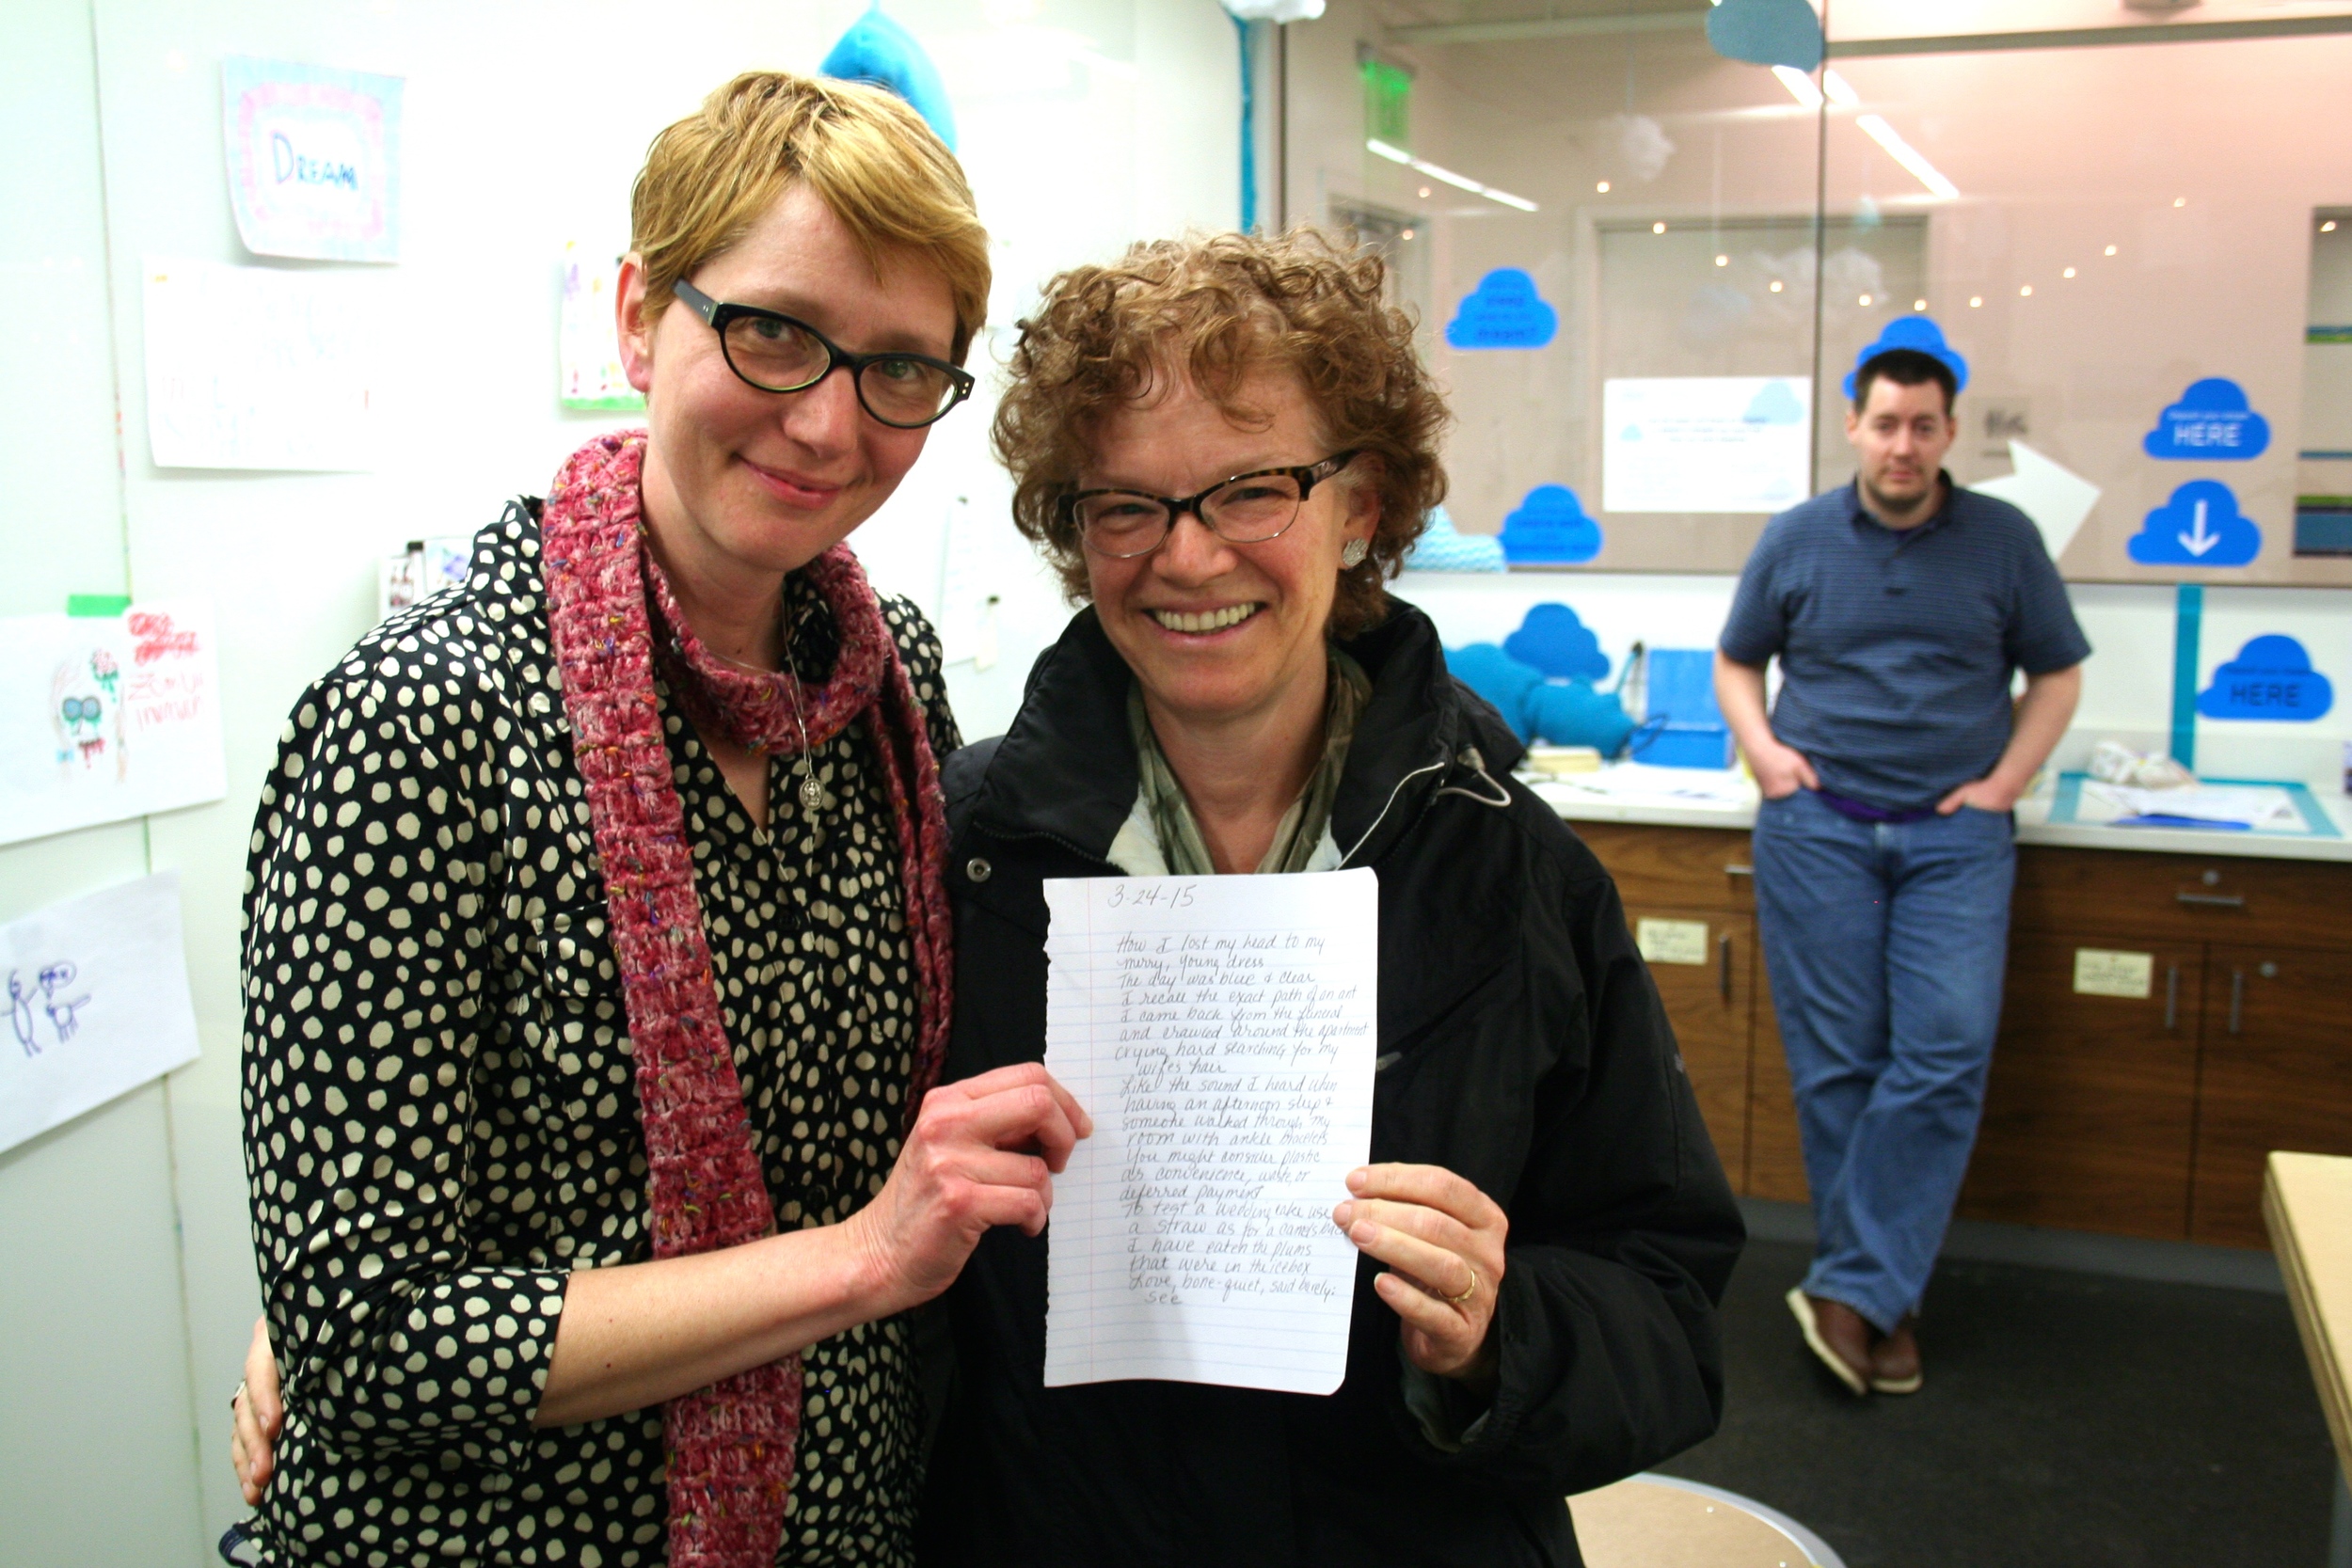 DREAM
HERE
HERE
3-24-15
How I lost my head to my
merry, young dress
The day was blue & clear
I recall the exact path of an ant
I came back from the funeral
and crawled around the apartment
crying hard searching for my
wife's hair
Like the sound I heard when
having an afternoon sleep &
someone walked through my
room with ankle bracelets
You might consider plastic
as convenience, waste, or
deferred payment
To test a wedding cake use
a straw as for a camel's back
I have eaten the plums
that were in the icebox
Love, bone-quiet, said barely:
see